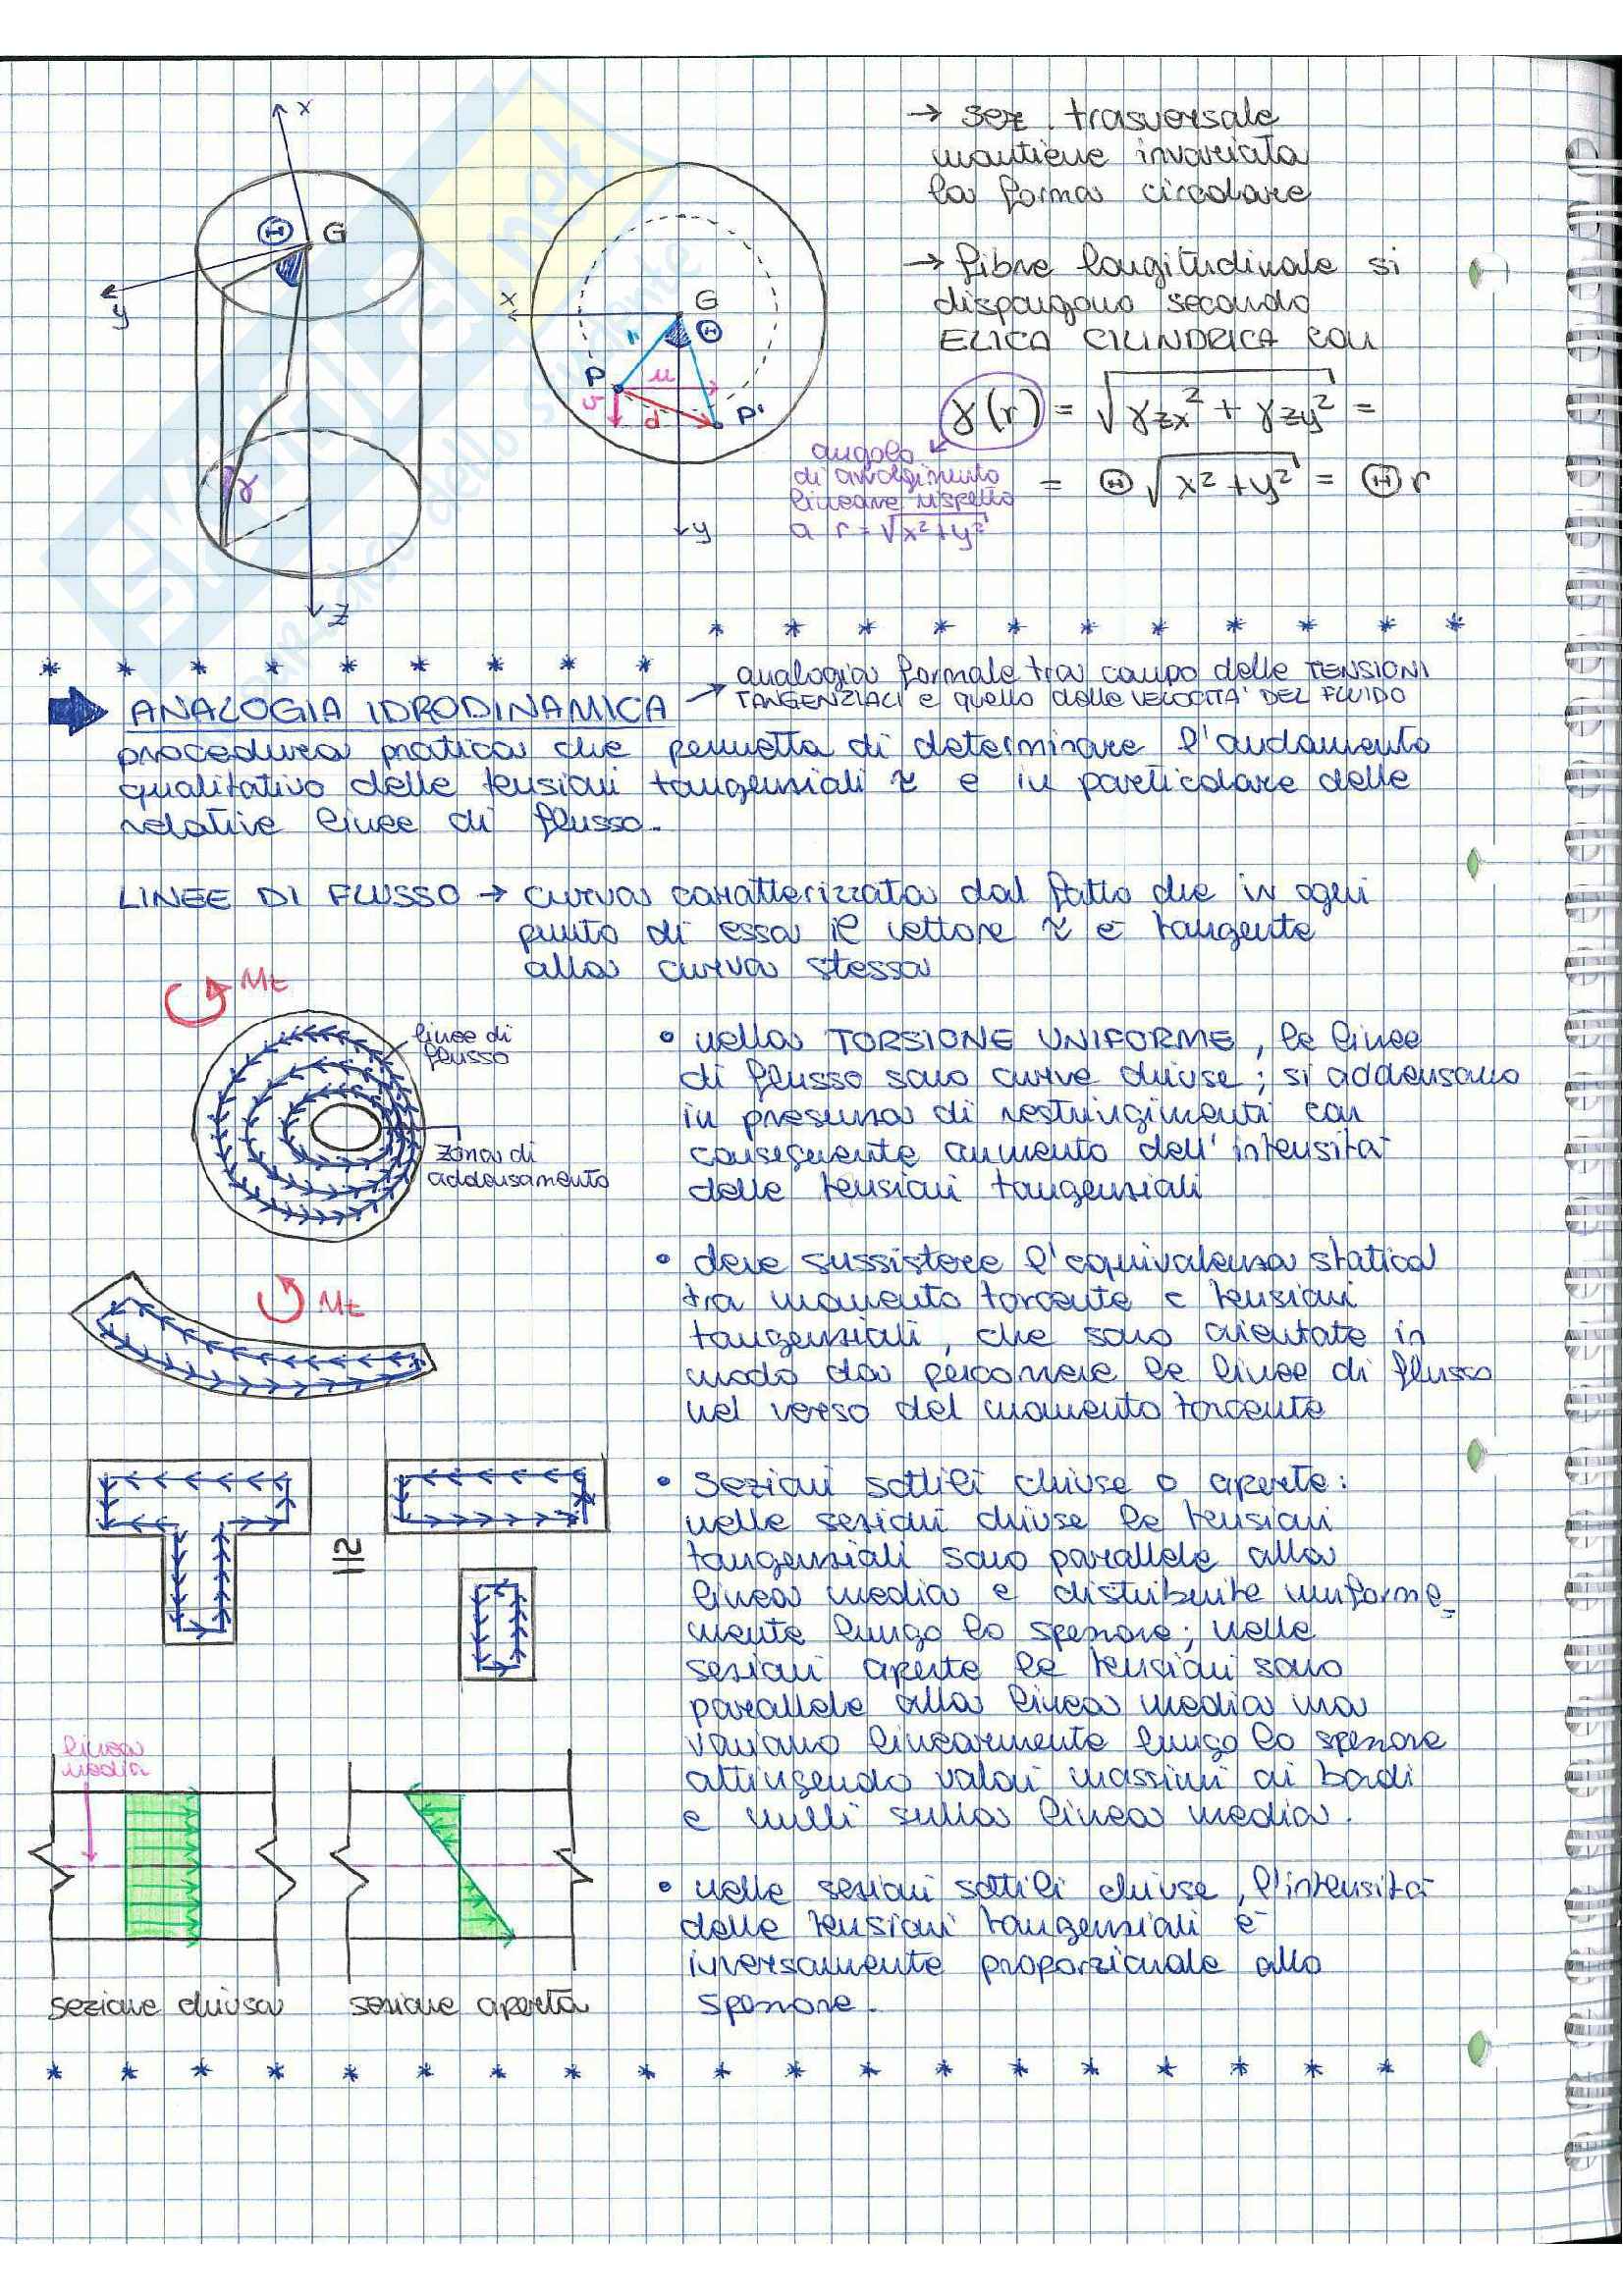 → sez. trasversale
mantiene invariata
la forma circolare
→ fibre longitudinale si
dispongono secondo
ELICA CILINDRICA con
γ(r) = √γzx² + γzy² =
= Θ √x²+y² = Θ r
angolo
di avvolgimento
lineare rispetto
a r = √x²+y²
x
Θ G
y
γ
z
x
G
Θ
r
P
u
v
d
P'
y
ANALOGIA IDRODINAMICA → analogia formale tra campo delle TENSIONI
TANGENZIALI e quello delle VELOCITA' DEL FLUIDO
procedura pratica che permette di determinare l'andamento
qualitativo delle tensioni tangenziali τ e in particolare delle
relative linee di flusso.
LINEE DI FLUSSO → curva caratterizzata dal fatto che in ogni
punto di essa il vettore τ è tangente
alla curva stessa
Mt
linee di
flusso
zona di
addensamento
• nella TORSIONE UNIFORME, le linee
di flusso sono curve chiuse; si addensano
in presenza di restringimenti con
conseguente aumento dell'intensità
delle tensioni tangenziali
Mt
• deve sussistere l'equivalenza statica
tra momento torcente e tensioni
tangenziali, che sono orientate in
modo da percorrere le linee di flusso
nel verso del momento torcente
• Sezioni sottili chiuse o aperte:
nelle sezioni chiuse le tensioni
tangenziali sono parallele alla
linea media e distribuite uniforme-
mente lungo lo spessore; nelle
sezioni aperte le tensioni sono
parallele alla linea media ma
variano linearmente lungo lo spessore
attingendo valori massimi ai bordi
e nulli sulla linea media.
linea
media
• nelle sezioni sottili chiuse, l'intensità
delle tensioni tangenziali è
inversamente proporzionale allo
spessore.
sezione chiusa sezione aperta